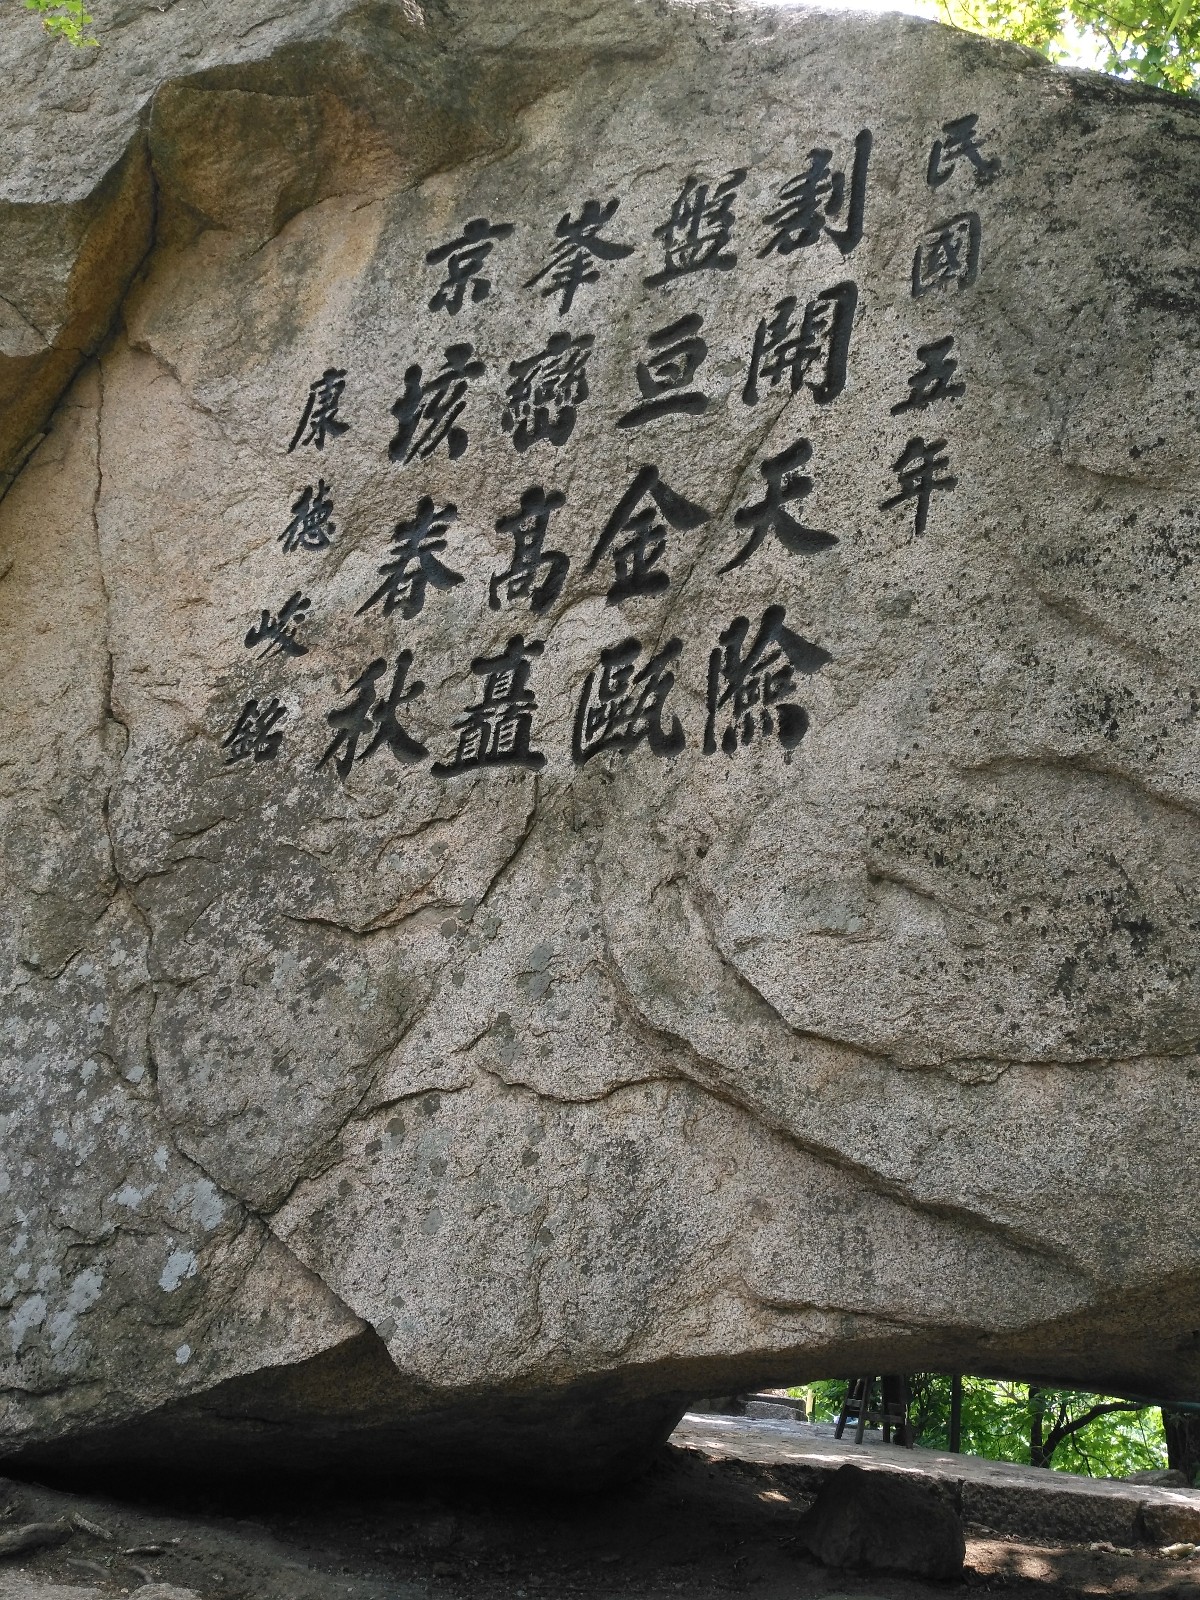 民國五年
劃開天險
盤亘金甌
峯巒高矗
京垓春秋
康德峻銘